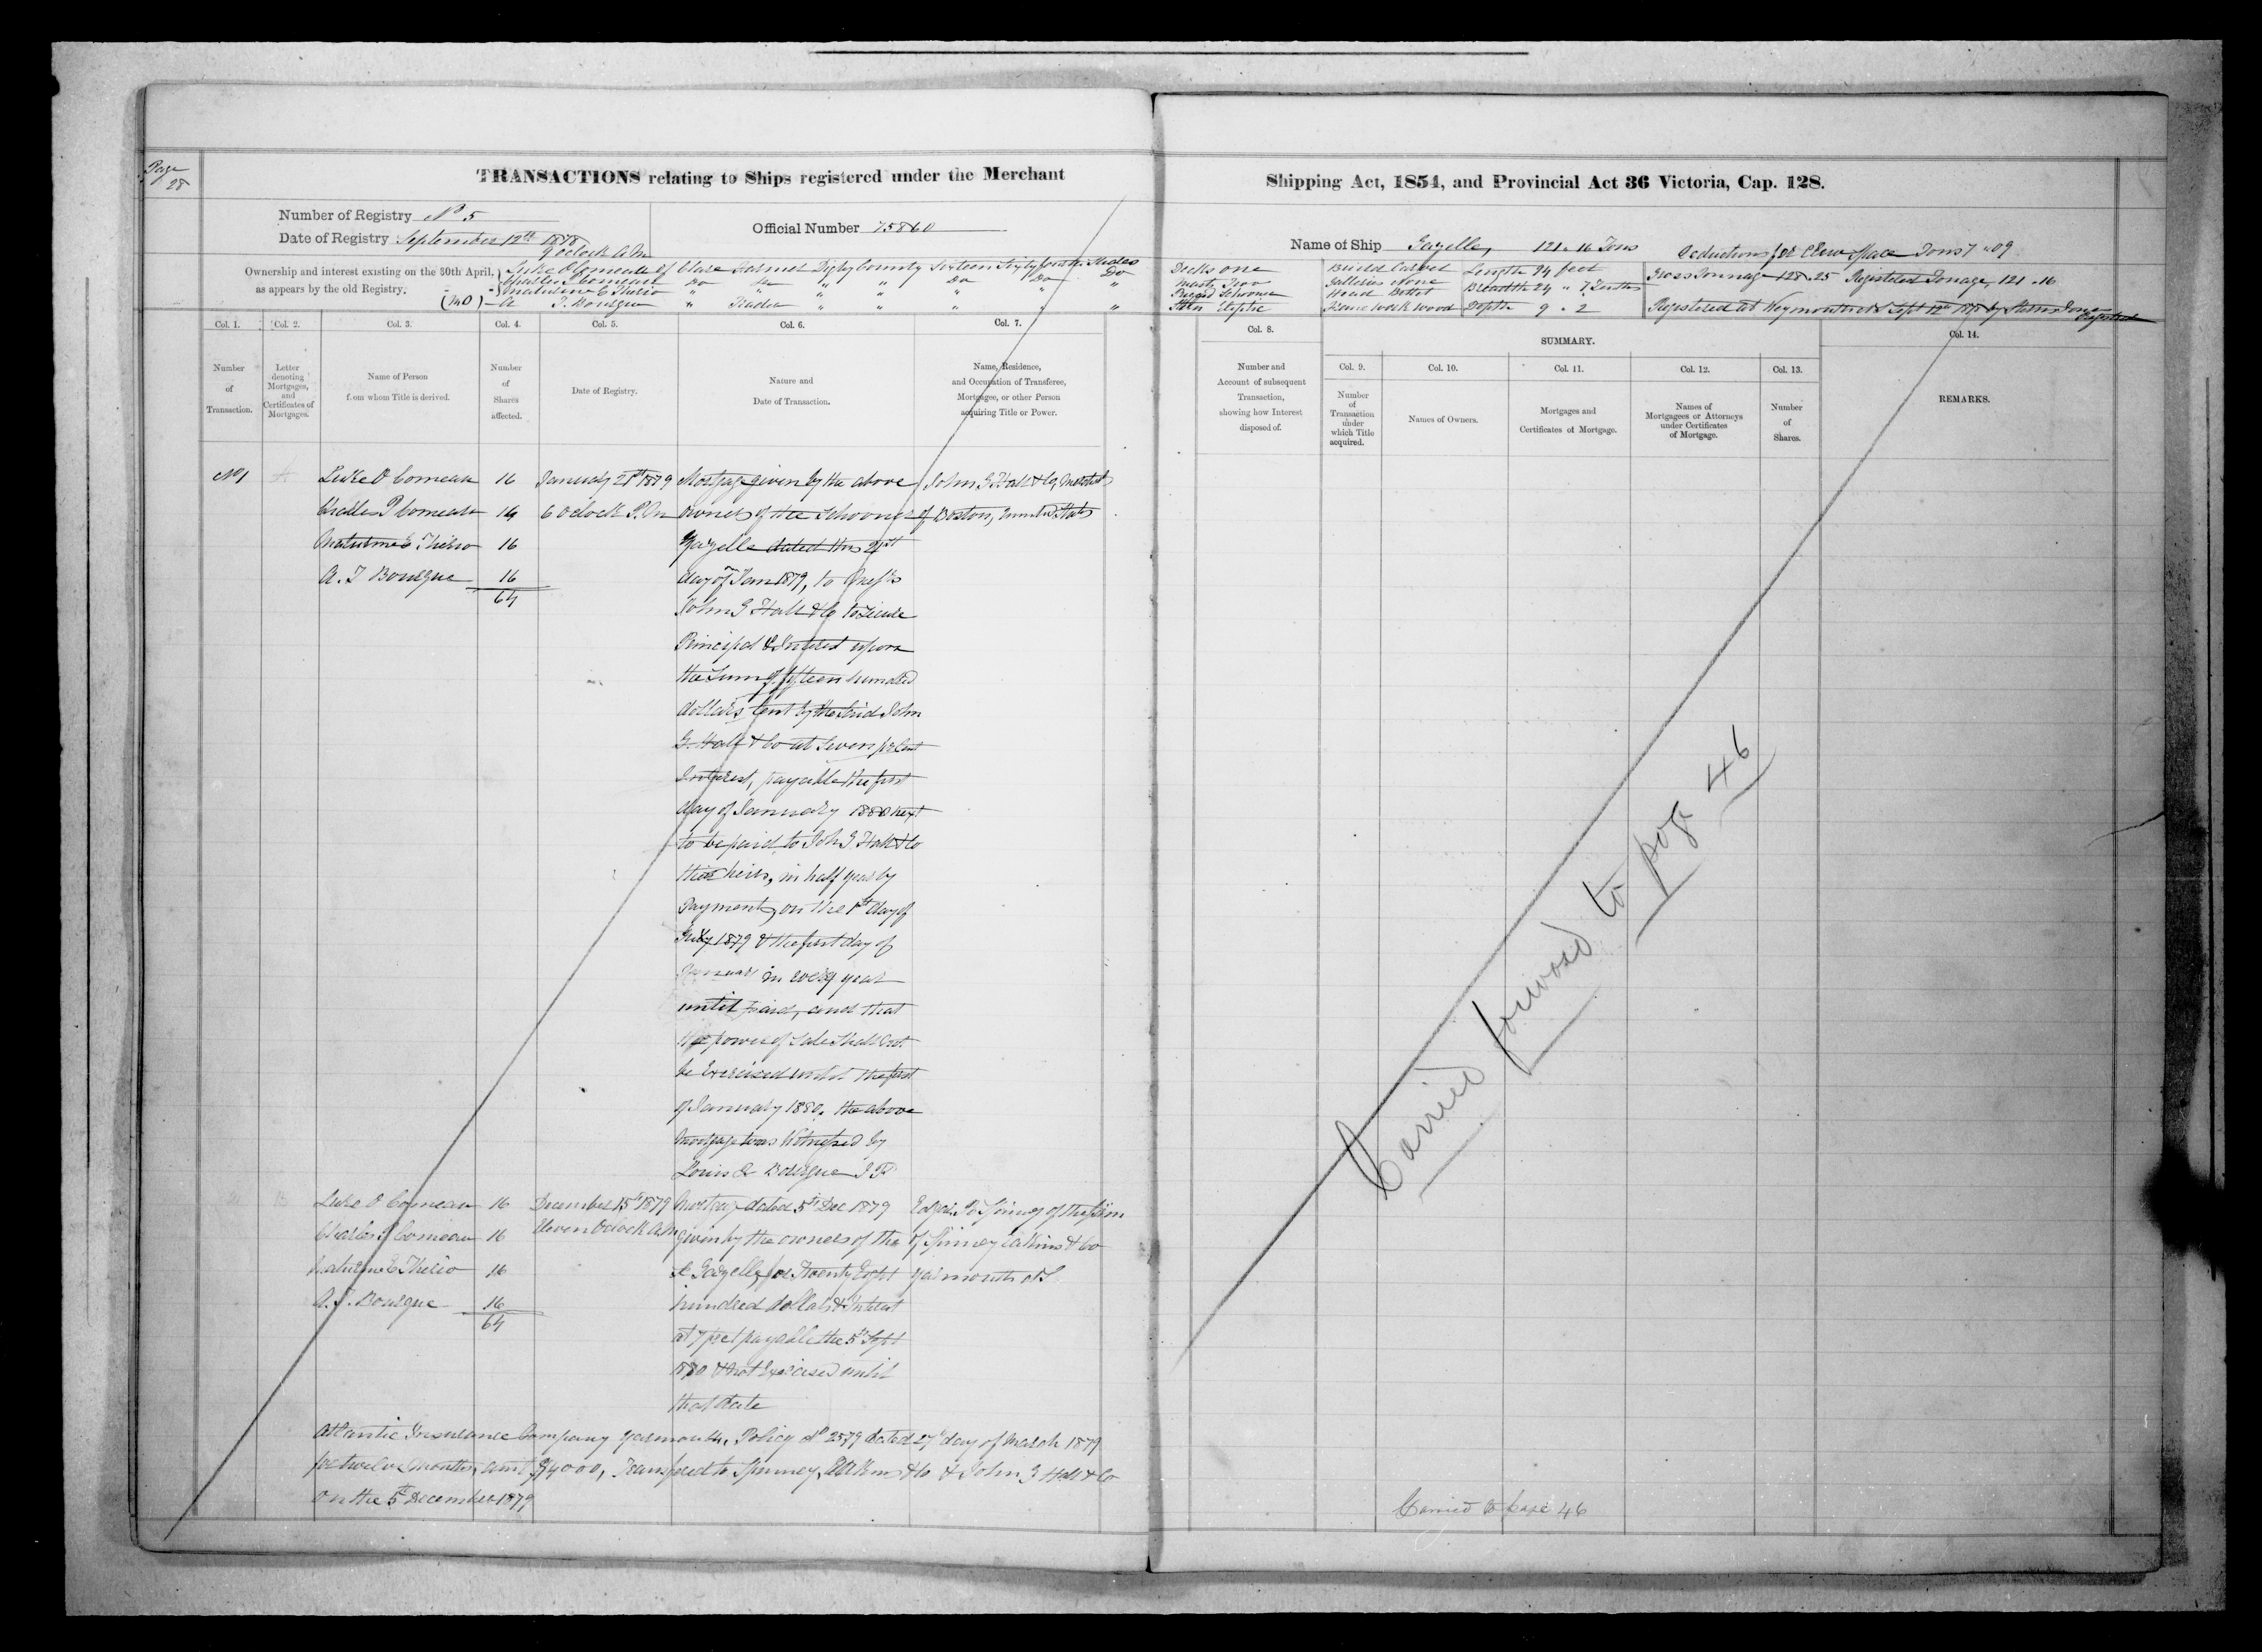 Page
28
TRANSACTIONS relating to Ships registered under the Merchant
Number of Registry No 5
Date of Registry September 12th 1878
9 oclock A.M
Official Number 75860
Ownership and interest existing on the 30th April,
as appears by the old Registry.
Luke O Comeau of Clare Farmer Digby County Sixteen Sixty fourth Shares
Charles P Comeau Do Do " " Do Do Do
Maturine C Therio " " " " " " "
A T Bourque " Trader " " " " "
Col. 1.
Col. 2.
Col. 3.
Col. 4.
Col. 5.
Col. 6.
Col. 7.
Number
of
Transaction.
Letter
denoting
Mortgages,
and
Certificates of
Mortgages.
Name of Person
from whom Title is derived.
Number
of
Shares
affected.
Date of Registry.
Nature and
Date of Transaction.
Name, Residence,
and Occupation of Transferee,
Mortgagee, or other Person
acquiring Title or Power.
No 1 A Luke O Comeau 16 January 21st 1879 Mortgage given by the above John G Hall & Co,
Charles P Comeau 16 6 oclock P.M owners of the Schooner of Boston, United States
Maturine C Therio 16 Gazelle dated this 21st
A. T Bourque 16 day of Jan 1879, to Messrs
64 John G Hall & Co to secure
Principal & Interest upon
the Sum of fifteen hundred
dollars lent by the said John
G. Hall & Co at seven pr Cent
Interest, payable the first
day of January 1880 next
to be paid to John G Hall & Co
their heirs, in half yearly
Payments, on the 1st day of
July 1879 & the first day of
January in every year
until paid, and that
the power of sale shall not
be Exercised until the first
of January 1880. the above
mortgage was Witnessed by
Louis Q Bourque J P
2 B Luke O Comeau 16 December 15th 1879 Mortgage dated 5th Dec 1879 Edgar K Spinney of the firm
Charles P Comeau 16 Eleven Oclock A.M given by the owners of the of Spinney Eakins & Co
Maturine C Therio 16 Gazelle for Twenty Eight Yarmouth NS
A. T. Bourque 16 hundred dollars & Interest
64 at 7 pr ct payable the 5th Sept
1880 & not Exercised until
that date
Atlantic Insurance Company Yarmouth, Policy No 2579 dated 27th day of March 1879
for twelve months, amt $4000, Transfered to Spinney, Eakins & Co & John G Hall & Co
on the 5th December 1879
Shipping Act, 1854, and Provincial Act 36 Victoria, Cap. 128.
Name of Ship Gazelle, 121.16 Tons Deductions for Crew Space Tons 7.09
Decks one
Masts Two
Rigged Schooner
Stern Eliptic
Build Carvel
Galleries None
Head Billet
Frame work wood
Length 94 feet
Breadth 24 " 7 Tenths
Depth 9.2
Gross Tonnage 128.25 Registered Tonage, 121.16
Registered at Weymouth NS Sept 12th 1878 by
Registrar
Col. 8.
Number and
Account of subsequent
Transaction,
showing how Interest
disposed of.
SUMMARY.
Col. 9.
Col. 10.
Col. 11.
Col. 12.
Col. 13.
Number
of
Transaction
under
which Title
acquired.
Names of Owners.
Mortgages and
Certificates of Mortgage.
Names of
Mortgagees or Attorneys
under Certificates
of Mortgage.
Number
of
Shares.
Col. 14.
REMARKS.
Carried forward to page 46
Carried to page 46